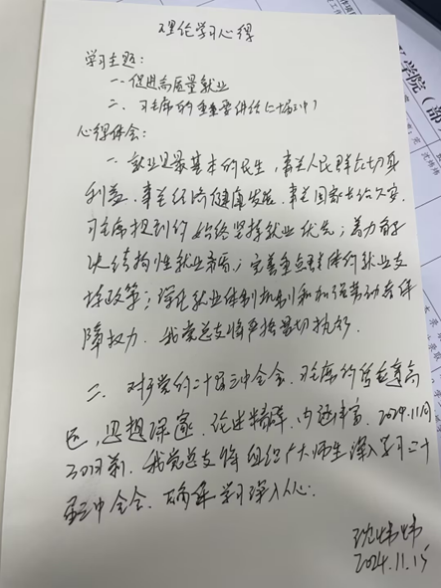 理论学习心得
学习主题:
一. 促进高质量就业
二. 习主席的重要讲话(二十届三中)
心得体会:
一. 就业是最基本的民生,事关人民群众切身
利益. 事关经济健康发展. 事关国家长治久安.
习主席提到的 始终坚持就业优先;着力解
决结构性就业矛盾;完善重点群体的就业支
持政策;深化就业体制机制和加强劳动者保
障权力. 我党总支将严格贯切执行.
二. 对于党的二十届三中全会. 习主席的
思想深邃. 论述精辟. 内涵丰富. 2024.11月
30日前. 我党总支将组织广大师生深入学习二十
届三中全会. 确保学习深入人心.
沈炜炜
2024.11.15
学院(部
沈炜炜